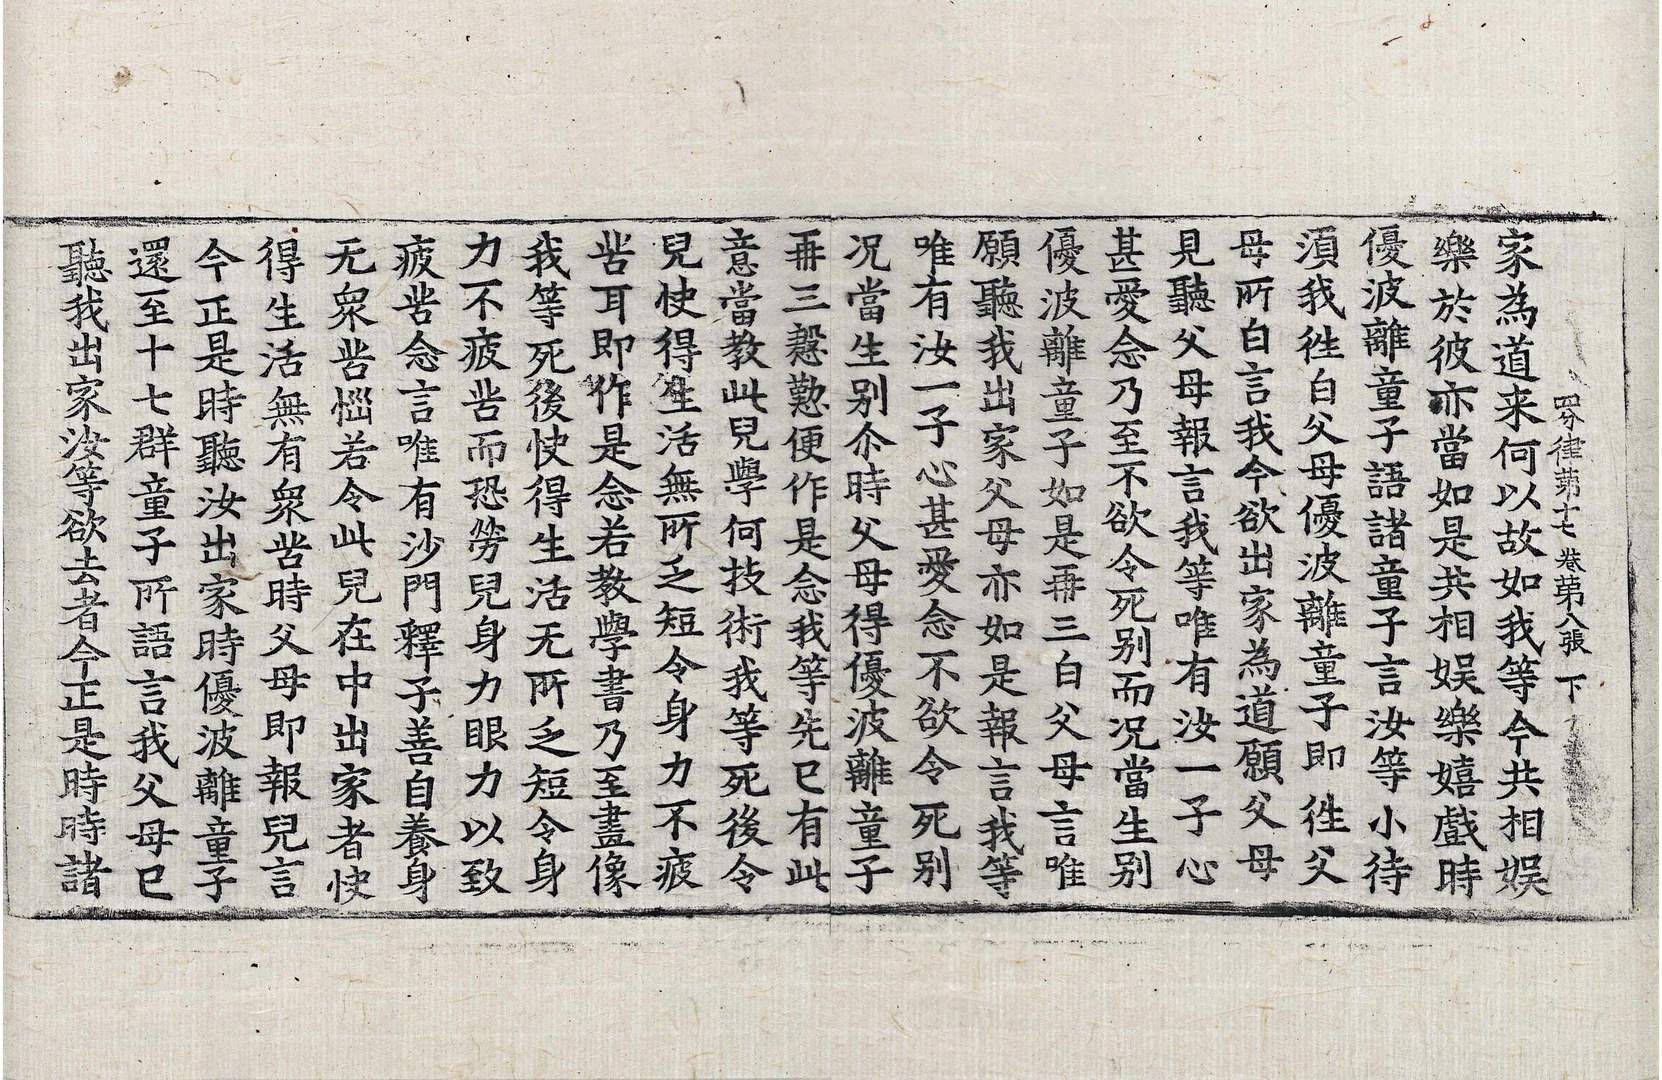 四分律第十七卷第八張 下
家為道来何以故如我等今共相娱
樂於彼亦當如是共相娱樂嬉戲時
優波離童子語諸童子言汝等小待
湏我徃白父母優波離童子即徃父
母所白言我今欲出家為道願父母
見聽父母報言我等唯有汝一子心
甚愛念乃至不欲令死别而况當生别
優波離童子如是再三白父母言唯
願聽我出家父母亦如是報言我等
唯有汝一子心甚愛念不欲令死别
况當生别尒時父母得優波離童子
再三慇懃便作是念我等先已有此
意當教此兒學何技術我等死後令
兒快得生活無所乏短令身力不疲
苦耳即作是念若教學書乃至畫像
我等死後快得生活无所乏短令身
力不疲苦而恐勞兒身力眼力以致
疲苦念言唯有沙門釋子善自養身
无衆苦惱若令此兒在中出家者快
得生活無有衆苦時父母即報兒言
今正是時聽汝出家時優波離童子
還至十七群童子所語言我父母已
聽我出家汝等欲去者今正是時時諸